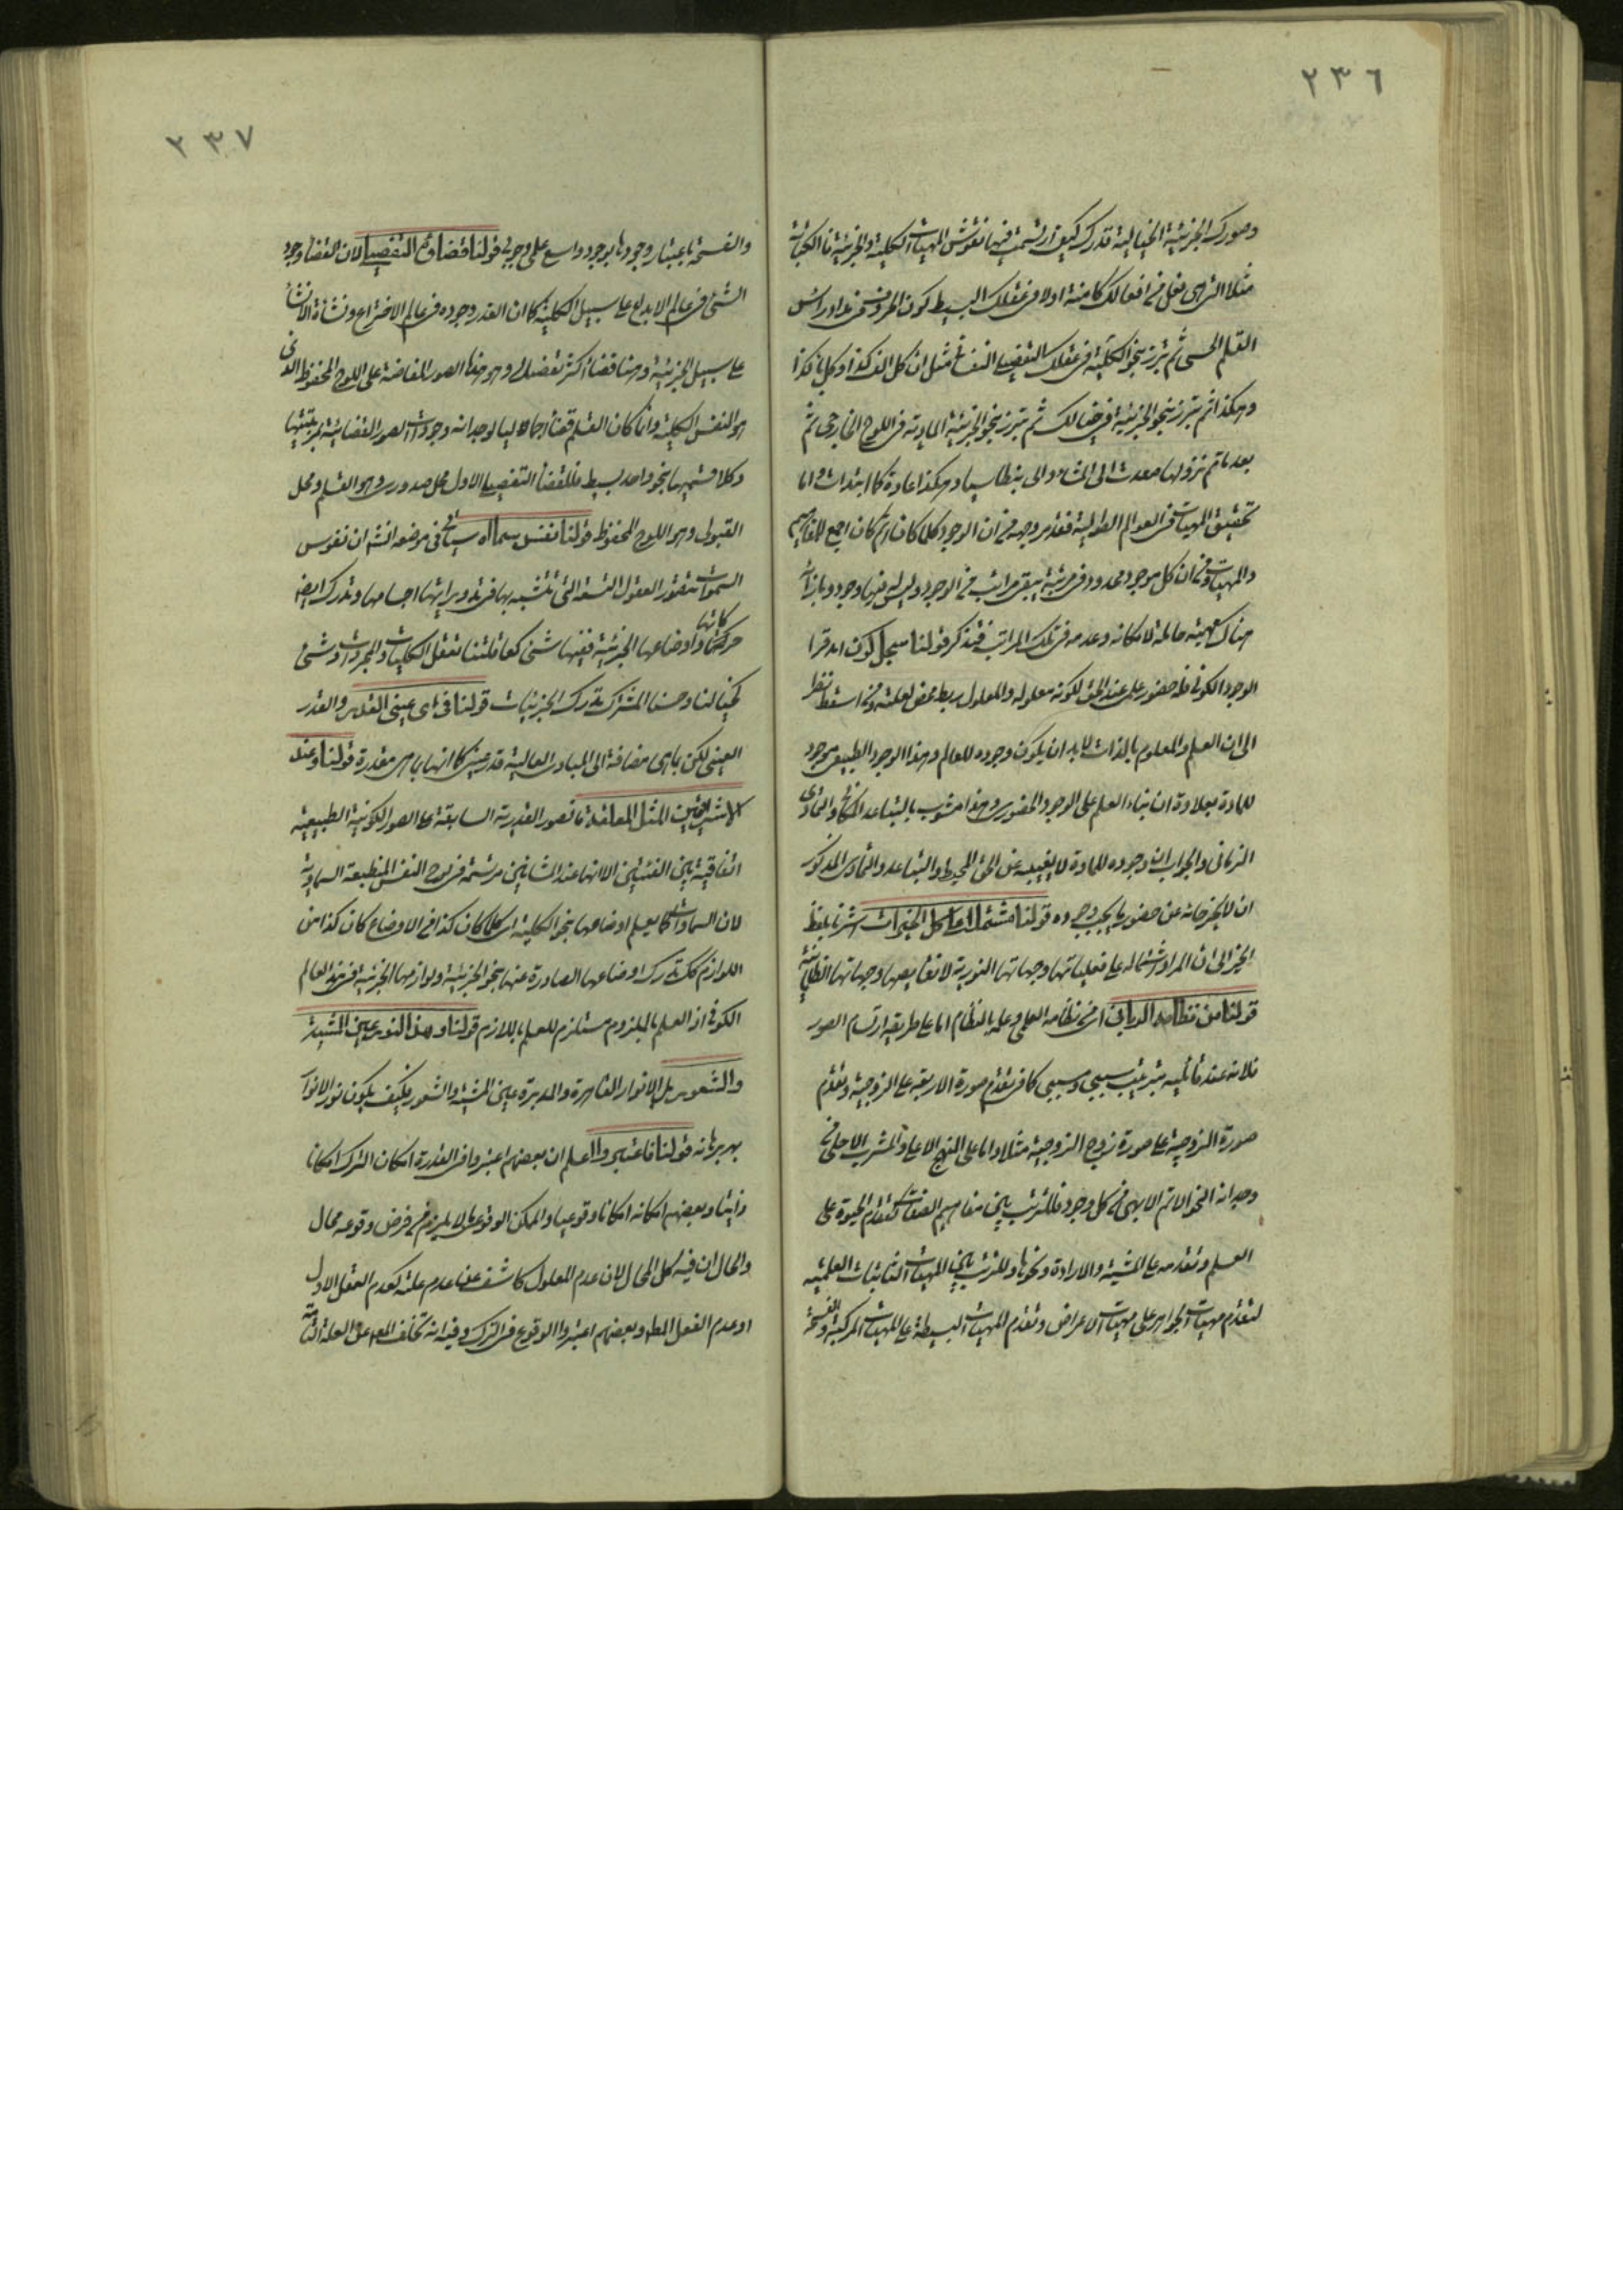 ٢٣٦
وصورك الجزئية الخيالية قدرك كيف ارتسمت فيها نقوش المهيات الكلية والجزئية فالكتابة
مثلا التى هى فعل من افعالك كامنة اولا فى عقلك البسيط ككون الحروف فى مداد راس
القلم الحسى ثم تبرز بنحو الكلية فى عقلك التفصيلى النفسانى مثل ان كل الف كذا وكل باء كذا
وهكذا ثم تبرز بنحو الجزئية فى خيالك ثم تبرز بنحو الجزئية المادية فى اللوح الخارجى ثم
بعد ما تم نزولها صعدت الى المشاعر والى بنطاسيا وهكذا عادة كما ابتدات واما
تحقيق المهيات فى العوالم الطولية فقد مر وجهه من ان الوجود كلما كان اتم كان اجمع للمفاهيم
والمهيات ومن ان كل موجود محدود فى مرتبة سبقه مراتب من الوجود وليس له فيها وجود وبازائه
هناك مهية حاملة لامكانه وعدمه فى تلك المراتب فتذكر قولنا سجل كون اه قرا
الوجود الكونى فله حضور علمى عند الحق لكونه معلوله والمعلول ربط محض لعلته ومن اسقط نظرا
الى ان العلم والمعلوم بالذات لابد ان يكون وجوده للعالم وهذا الوجود الطبيعى موجود
للمادة بعلاوة ان بناء العلم على الوجود الحضورى وهذا مشوب بالتباعد المكانى والتمادى
الزمانى والجواب ان وجوده للمادة لا يغيبه عن الحق المحيط والتباعد والتمادى المذكور
ان لا يخرجانه عن حضور ما يجب وجوده قولنا مشتملا على كل الخيرات اشرنا بلفظ
الخير الى ان المراد اشتماله على فعلياتها وجهاتها النورية لا نقايصها وجهاتها الظلمانية
قولنا من نظامه الربانى اى من نظامه العلمى وعلمه بالنظام اما على طريقة ارتسام الصور
فلانه عند قائليه بترتيب سببى ومسببى كما فى تقدم صورة الاربعة على الزوجية وتقدم
صورة الزوجية على صورة زوج الزوجية مثلا واما على النهج الاعلى والمشرب الاحلى من
وجدانه النحو الاتم الابهى من كل وجود فللترتب بين مفاهيم الصفات كتقدم الحيوة على
العلم وتقدمه على المشية والارادة ونحوها وللترتب بين المهيات الثابتات العلمية
لتقدم مهيات الجواهر على مهيات الاعراض وتقدم المهيات البسيطة على المهيات المركبة والفسحة
٢٣٧
والفسحة باعتبار وجودها بوجود واسع على وجوبى قولنا قضاؤه التفصيلى لان القضاء وجود
الشئ فى عالم الابداع على سبيل الكلية كما ان القدر وجوده فى عالم الاختراع ونشاة الانشاء
على سبيل الجزئية وهنا قضاء اكثر تفضيلا وهو هذا الصور المفاضة على اللوح المحفوظ الذى
هو النفس الكلية وانما كان القلم قضاء اجماليا لوجدانه وجودات الصور القضائية برمتها
وكلا قسميها بنحو واحد بسيط فللقضاء التفصيلى الاول محل صدورى وهو القلم ومحل
القبول وهو اللوح المحفوظ قولنا نفس سما اه سياتى فى موضعه انشاء ان نفوس
السموات تتصور العقول التسعة التى تتشبه بها فتريد وبراتبها اجسامها وتدرك ايضا
حركاتها واوضاعها الجزئية ففيها شئ كعاقلتنا تعقل الكليات والمجردات وشئ
كخيالنا وحسنا المشترك تدرك الجزئيات قولنا فى اى عينى القدر والقدر
العينى لكن باى مضافة الى المبادى العالية قدر عينى كما انها باى مقدرة قولنا وعند
الاشراقيين المثل المعلقة فالصور القدرية السابقة على الصور الكونية الطبيعية
اتفاقية بين الفئتين الا انها عند المشائين مرتسمة فى لوح النفس المنطبعة السماوية
لان السماوات كما يعلم اوضاعها بنحو الكلية اى كلما كان كذا من الاوضاع كان كذا من
اللوازم كك تدرك اوضاعها الصادرة عنها بنحو الجزئية ولوازمها الجزئية فى هذا العالم
الكونى اذ العلم بالملزوم مستلزم للعلم باللازم قولنا وهذا النور عين المشية
والشعور بل الانوار القاهرة والمدبرة عين المشية والشعور فكيف يكون نور الانوار
بهر برهانه قولنا فاعتبروا اعلم ان بعضهم اعتبروا فى القدرة امكان الترك امكانا
ذاتيا وبعضهم امكانه امكانا وقوعيا والممكن الوقوعى ما لا يلزم من فرض وقوعه محال
والحال ان فيه كل المحال لان عدم المعلول كاشف عن عدم علته كعدم العقل الاول
او عدم الفعل المط وبعضهم اعتبروا الوقوع فى الترك وفيه انه تخلف المعلول عن العلة التامة